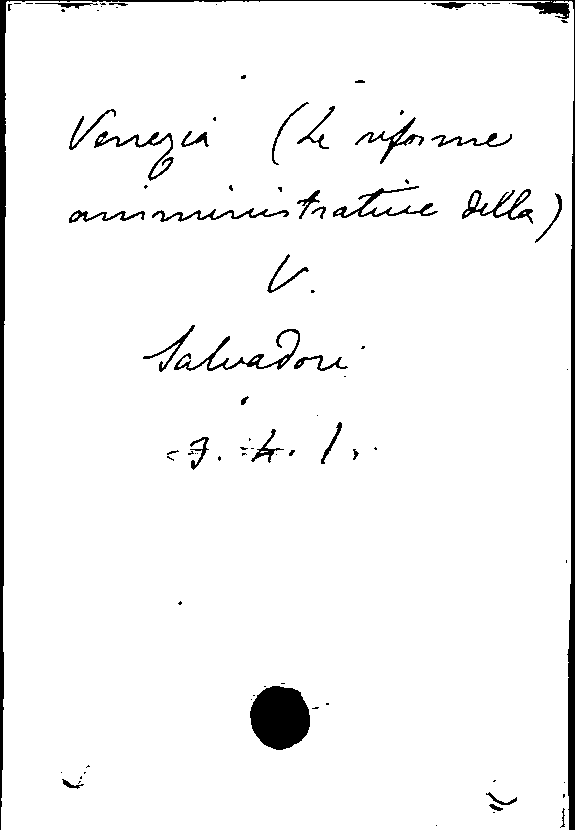 Venezia (Le riforme
amministrative della)
V.
Salvadori
J. 4. 1.